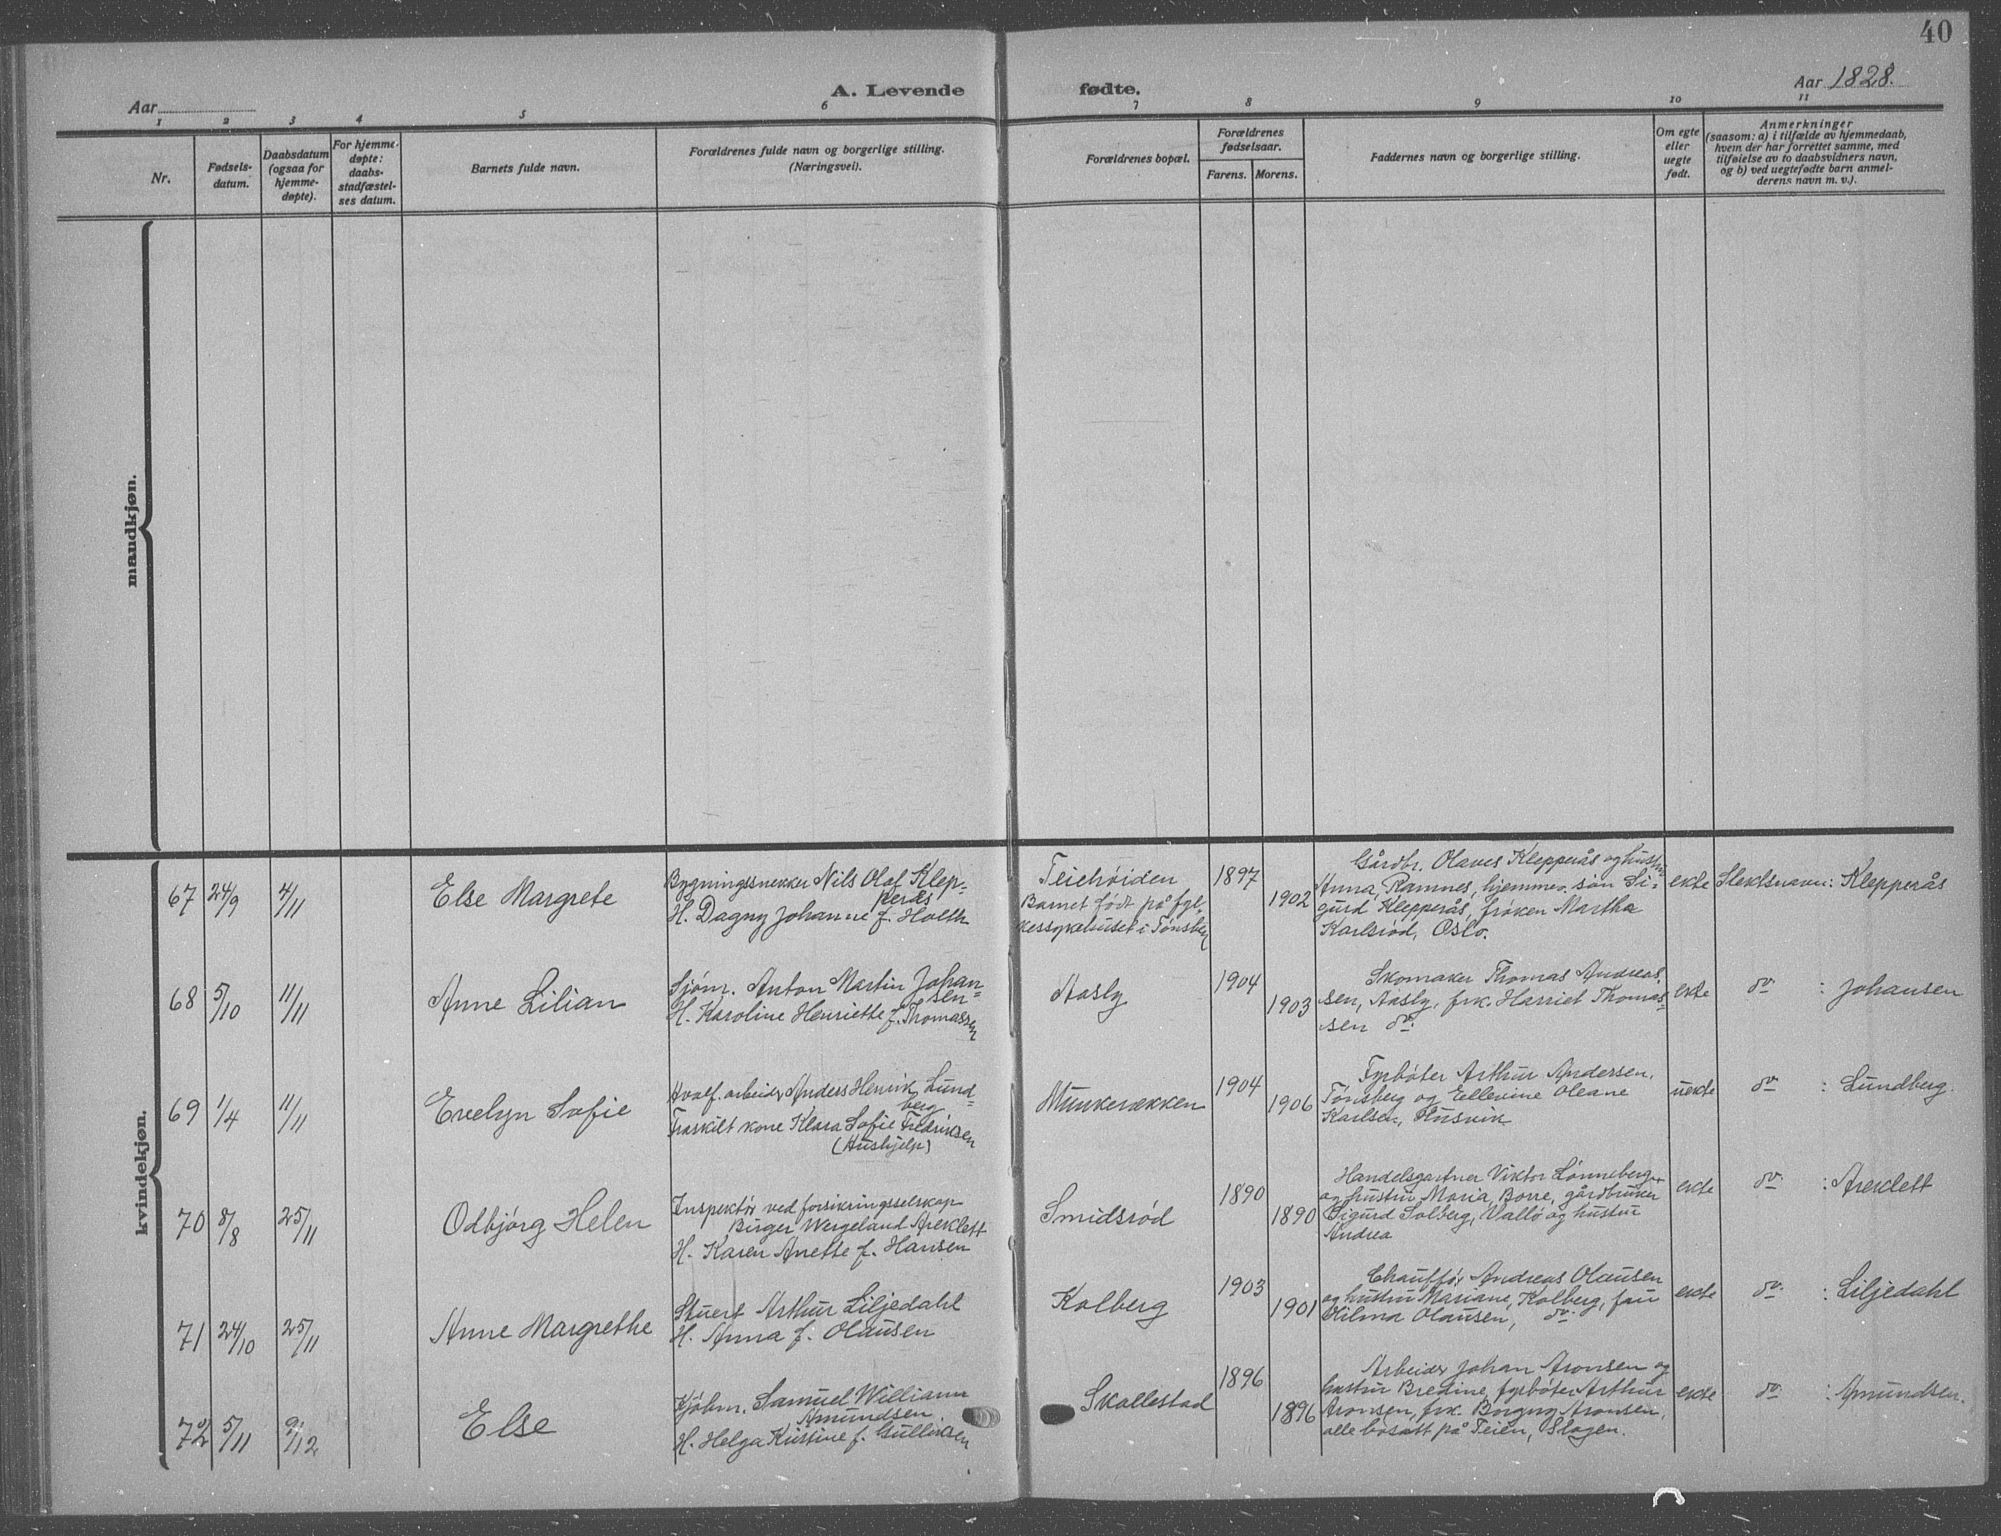 40
A. Levende fødte.
Aar
Aar 1828.
1 2 3 4 5 6 7 8 9 10 11
Nr.
Fødsels-
datum.
Daabsdatum
(ogsaa for
hjemme-
døpte).
For hjemme-
døpte:
daabs-
stadfæstel-
ses datum.
Barnets fulde navn.
Forældrenes fulde navn og borgerlige stilling.
(Næringsvei).
Forældrenes bopæl.
Forældrenes
fødselsaar.
Farens. Morens.
Faddernes navn og borgerlige stilling.
Om egte
eller
uegte
født.
Anmerkninger
(saasom: a) i tilfælde av hjemmedaab,
hvem der har forrettet samme, med
tilføielse av to daabsvidners navn,
og b) ved uegtefødte barn anmel-
derens navn m. v.).
mandkjøn.
kvindekjøn.
67 24/9 4/11
Else Margrete
Bygningssnekker Nils Olaf Klep-
perås
H. Dagny Johanne f. Holth
Teiehöiden
Barnet født på fyl-
kessykehuset i Tønsberg
1897
1902
Gårdbr. Olaves Klepperås og hustru
Anna, Ramnes, hjemmev. søn Si-
gurd Klepperås, frøken Martha
Karlsrød, Oslo.
ekte
Slektsnavn: Klepperås
68 5/10 11/11
Anne Lilian
Sjøm. Anton Martin Johan-
sen
H. Karoline Henriette f. Thomassen
Aasly
1904
1903
Skomaker Thomas Andreas-
sen, Aasly, frk. Harriet Thomas-
sen do.
ekte
do : Johansen
69 1/4 11/11
Evelyn Sofie
Hvalf.arbeider Anders Henrik Lund-
berg
Fraskilt kone Klara Sofie Fredriksen
(Hushjelp)
Munkerekken
1904
1906
Fyrbøter Arthur Andersen,
Tønsberg og Ellevine Oleane
Karlsen, Husvik
uekte
do : Lundberg.
70 8/8 25/11
Odbjörg Helen
Inspektör ved forsikringsselskap
Birger Wergeland Areklett
H. Karen Anette f. Hansen
Smidsrød
1890
1890
Handelsgartner Viktor Lönneberg
og hustru Maria, Borre, gårdbruker
Sigurd Solberg, Vallö og hustru
Andrea
ekte
do : Areklett
71 24/10 25/11
Anne Margrethe
Stuert Arthur Liljedahl
H. Anna f. Olausen
Kolberg
1903
1901
Chauffør Andreas Olausen
og hustru Mariane, Kolberg, fru
Vilma Olausen, do.
ekte
do : Liljedahl
72 5/11 9/12
Else
Kjöbm. Samuel William
Amundsen.
H. Helga Kristine f. Gulliksen
Skallestad
1896
1896
Arbeider Johan Aronsen og
hustru Bredine, fyrbøter Arthur
Aronsen, frk. Borgny Aronsen,
alle bosatt på Teien, Slagen.
ekte
do : Amundsen.